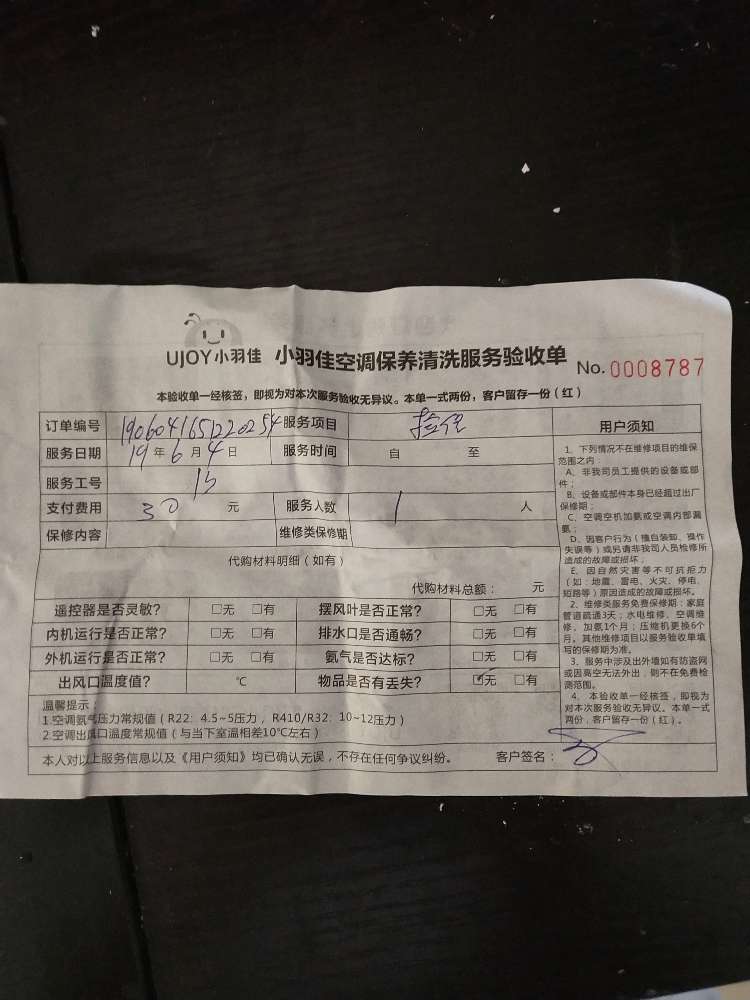 UJOY小羽佳 小羽佳空调保养清洗服务验收单 No.0008787
本验收单一经核签，即视为对本次服务验收无异议。本单一式两份，客户留存一份（红）
订单编号 190604165122025 服务项目
服务日期 19年6月4日 服务时间 自 至
服务工号 15
支付费用 30 元 服务人数 1 人
保修内容 维修类保修期
代购材料明细（如有）
代购材料总额： 元
遥控器是否灵敏？ □无 □有 摆风叶是否正常？ □无 □有
内机运行是否正常？ □无 □有 排水口是否通畅？ □无 □有
外机运行是否正常？ □无 □有 氨气是否达标？ □无 □有
出风口温度值？ ℃ 物品是否有丢失？ ☑无 □有
温馨提示：
1.空调氨气压力常规值（R22：4.5~5压力，R410/R32：10~12压力）
2.空调出风口温度常规值（与当下室温相差10℃左右）
本人对以上服务信息以及《用户须知》均已确认无误，不存在任何争议纠纷。 客户签名：
用户须知
1、下列情况不在维修项目的维保
范围之内：
A、非我司员工提供的设备或部
件；
B、设备或部件本身已经超过出厂
保修期；
C、空调空机加氨或空调内部漏
氨；
D、因客户行为（擅自装卸、操作
失误等）或另请非我司人员检修所
造成的故障或损坏；
E、因自然灾害等不可抗拒力
（如：地震、雷电、火灾、停电、
短路等）原因造成的故障或损坏。
2、维修类服务免费保修期：家庭
管道疏通3天；水电维修、空调维
修、加氨1个月；压缩机更换6个
月。其他维修项目以服务验收单填
写的保修期为准。
3、服务中涉及出外墙如有防盗网
或因高空无法外出，则不在免费检
测范围。
4、本验收单一经核签，即视为
对本次服务验收无异议。本单一式
两份，客户留存一份（红）。